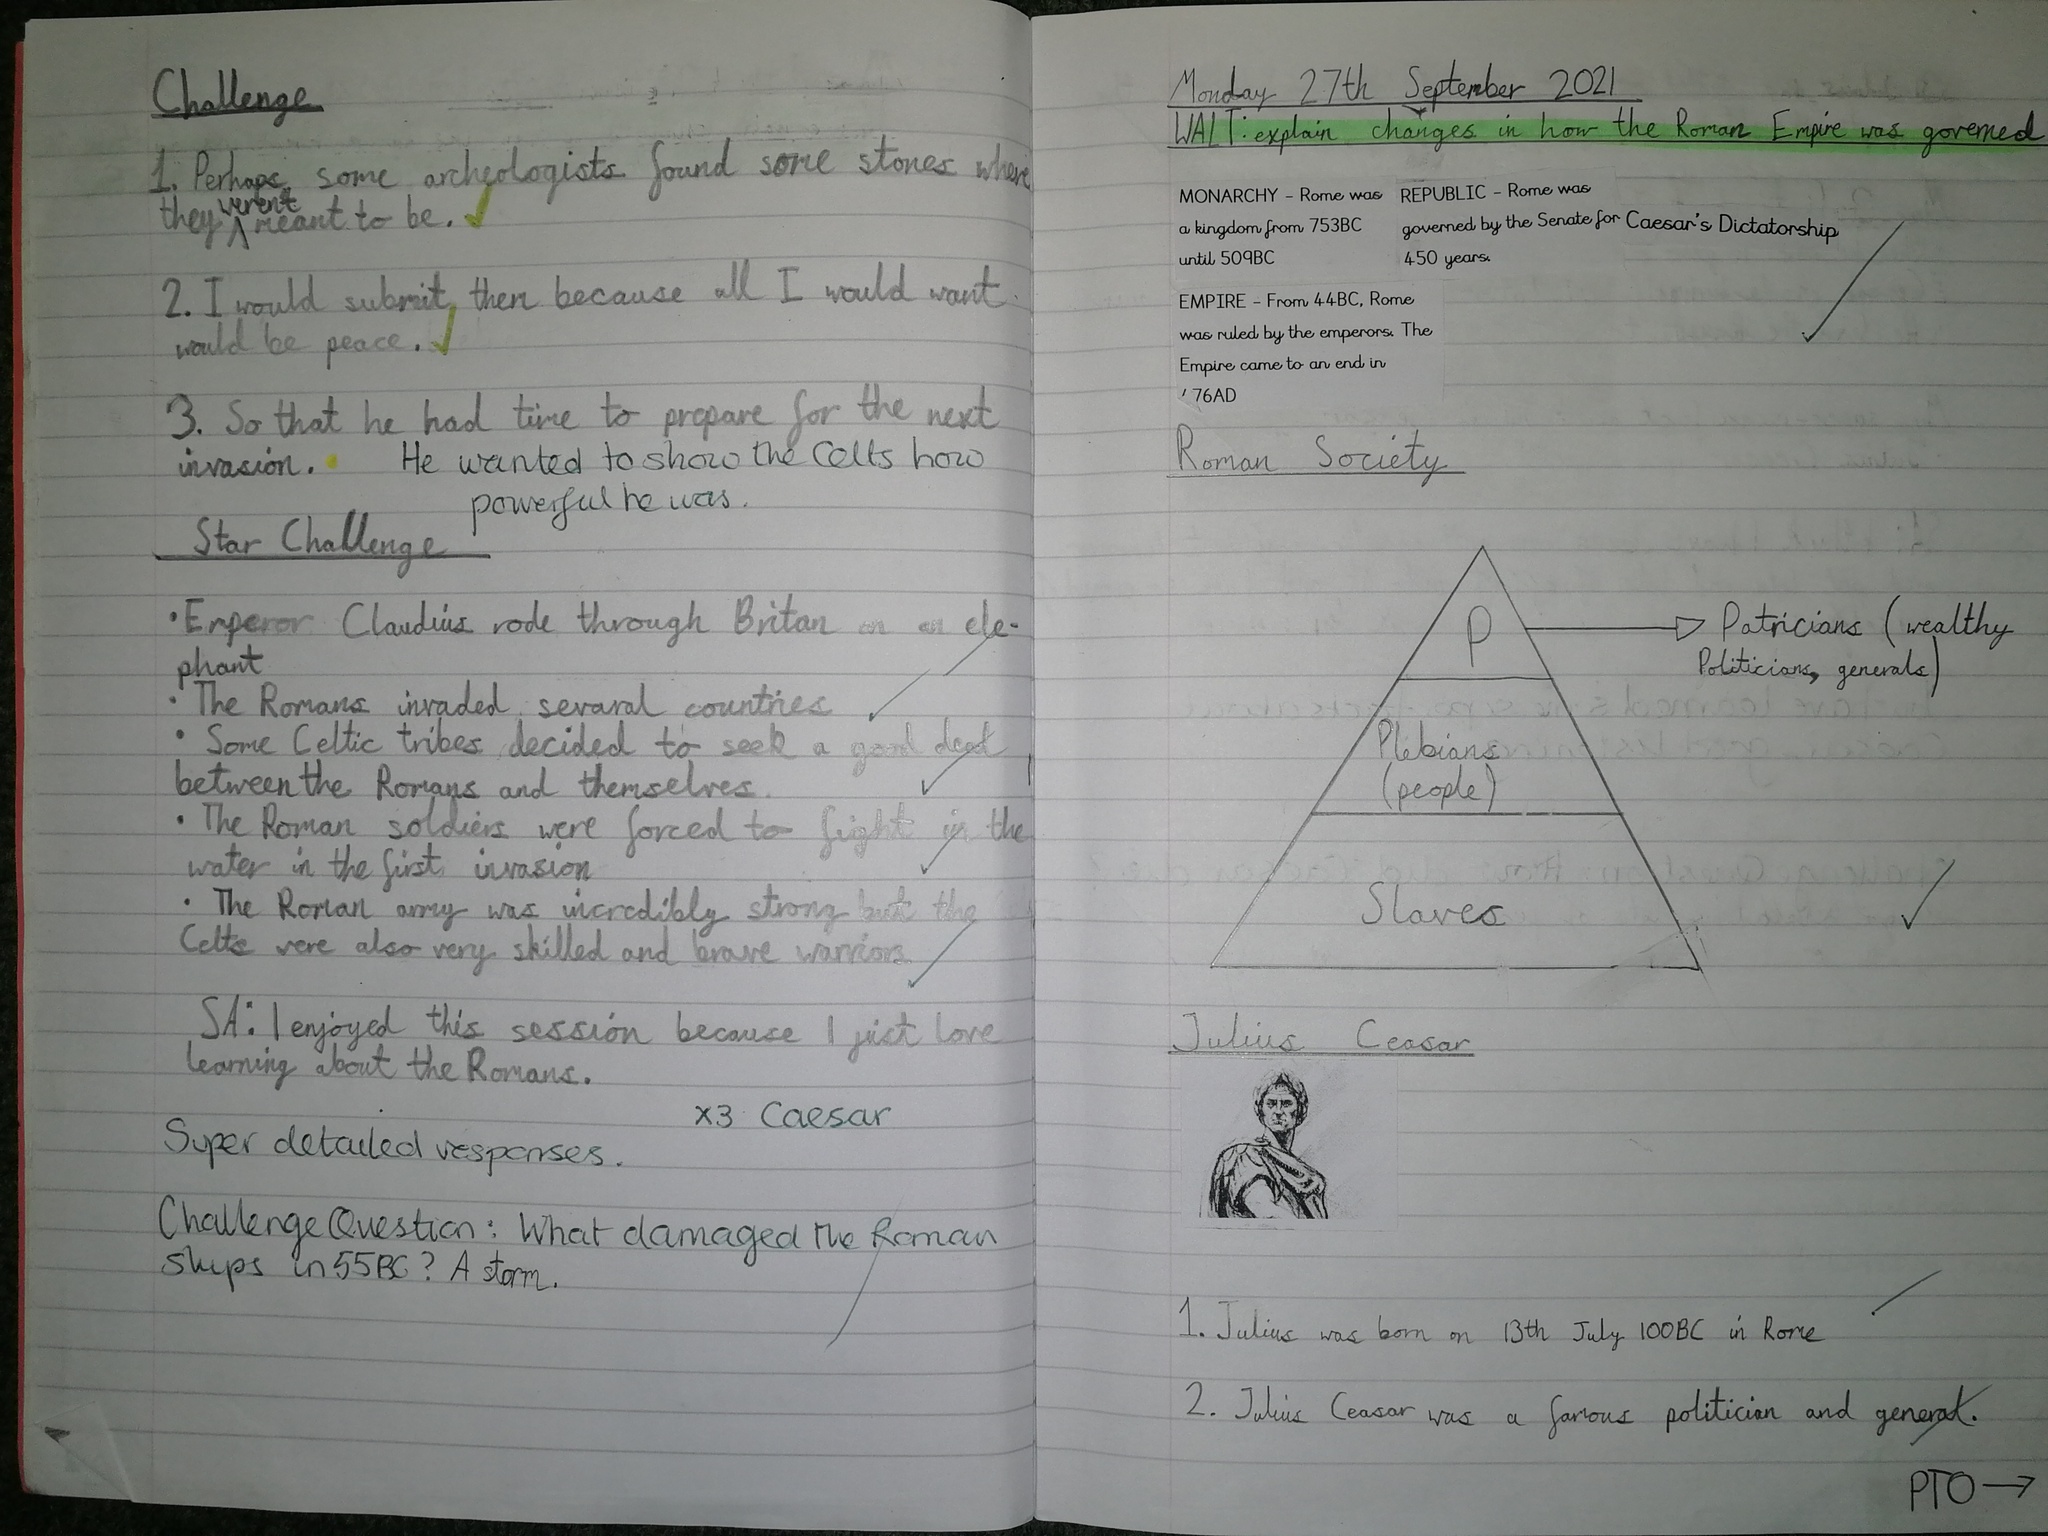 Challenge
1. Perhaps, some archeologists found some stones where
they werent meant to be.
2. I would submit, then because all I would want
would be peace.
3. So that he had time to prepare for the next
invasion. He wanted to show the Celts how
powerful he was.
Star Challenge
• Emperor Claudius rode through Britan on an ele-
phant
• The Romans invaded sevaral countries
• Some Celtic tribes decided to seek a good deal
between the Romans and themselves.
• The Roman soldiers were forced to fight in the
water in the first invasion
• The Roman army was incredibly strong but the
Celts were also very skilled and brave warriors.
SA: I enjoyed this session because I just love
learning about the Romans.
x3 Caesar
Super detailed responses.
Challenge Question: What damaged the Roman
ships in 55BC? A storm.
Monday 27th September 2021
WALT: explain changes in how the Roman Empire was governed
MONARCHY – Rome was
a kingdom from 753BC
until 509BC
REPUBLIC – Rome was
governed by the Senate for
450 years.
Caesar's Dictatorship
EMPIRE – From 44BC, Rome
was ruled by the emperors. The
Empire came to an end in
76AD
Roman Society
P
Patricians (wealthy
Politicians, generals)
Plebians
(people)
Slaves
Julius Ceasar
1. Julius was born on 13th July 100BC in Rome
2. Julius Ceasar was a famous politician and general.
PTO →